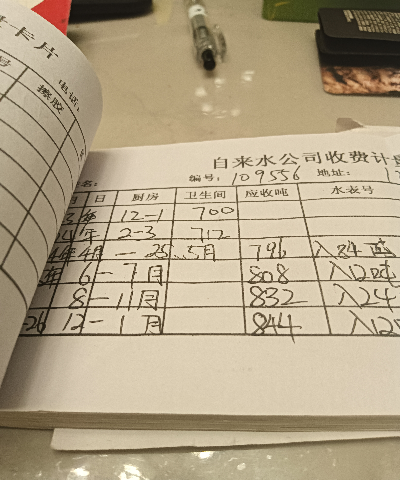 卡片
电话:
擦胶
自来水公司收费计
编号: 109556 地址:
名:
日 厨房 卫生间 应收吨 水表号
12-1 700
年 2-3 712
年4月 — 25.5月 796 入84吨
年 6 — 7月 808 入12吨
8 — 11月 832 入24
-26 12 — 1月 844 入12